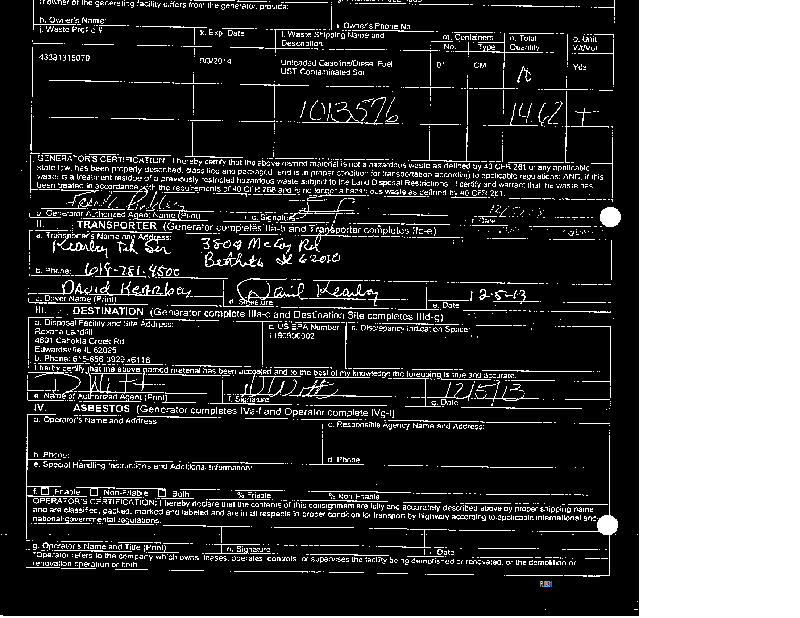 If owner of the generating facility differs from the generator, provide:
h. Owner's Name: i. Owner's Phone No
j. Waste Profile # k. Exp. Date l. Waste Shipping Name and Description m. Containers n. Total Quantity o. Unit Wt/Vol
No. Type
Unleaded Gasoline/Diesel Fuel
UST Contaminated Soil
01 CM Yds
1013576 14.62 T
GENERATOR'S CERTIFICATION: I hereby certify that the above named material is not a hazardous waste as defined by 40 CFR 261 or any applicable
state law, has been properly described, classified and packaged, and is in proper condition for transportation according to applicable regulations; AND, if this
waste is a treatment residue of a previously restricted hazardous waste subject to the Land Disposal Restrictions, I certify and warrant that the waste has
been treated in accordance with the requirements of 40 CFR 268 and is no longer a hazardous waste as defined by 40 CFR 261.
p. Generator Authorized Agent Name (Print) q. Signature r. Date
II. TRANSPORTER (Generator completes IIa-b and Transporter completes IIc-e)
a. Transporter's Name and Address:
3804 McCoy Rd
Bethalto IL 62010
b. Phone:
David Kearbey David Kearbey 12-5-13
c. Driver Name (Print) d. Signature e. Date
III. DESTINATION (Generator complete IIIa-c and Destination Site completes IIId-g)
a. Disposal Facility and Site Address: c. US EPA Number d. Discrepancy Indication Space:
Roxana Landfill
4601 Cahokia Creek Rd
Edwardsville IL 62025
b. Phone: 618-656-3929 x6116
I hereby certify that the above named material has been accepted and to the best of my knowledge the foregoing is true and accurate.
D Witt D Witt 12/5/13
e. Name of Authorized Agent (Print) f. Signature g. Date
IV. ASBESTOS (Generator completes IVa-f and Operator complete IVg-i)
a. Operator's Name and Address c. Responsible Agency Name and Address:
b. Phone: d. Phone
e. Special Handling Instructions and Additional Information:
f. Friable Non-Friable Both % Friable % Non Friable
OPERATOR'S CERTIFICATION: I hereby declare that the contents of this consignment are fully and accurately described above by proper shipping name
and are classified, packed, marked and labeled and are in all respects in proper condition for transport by highway according to applicable international and
national governmental regulations.
g. Operator's Name and Title (Print) h. Signature i. Date
*Operator refers to the company which owns, leases, operates, controls, or supervises the facility being demolished or renovated, or the demolition or
renovation operation or both